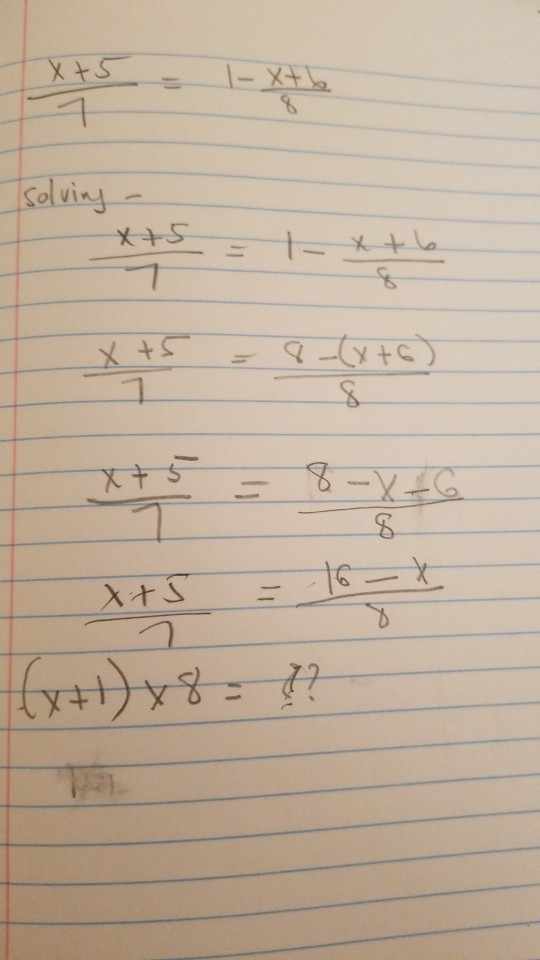 x+5/7 = 1-x+6/8
solving -
x+5/7 = 1-x+6/8
x+5/7 = 8-(x+6)/8
x+5/7 = 8-x-6/8
x+5/7 = 16-x/8
(x+1)x8 = ??